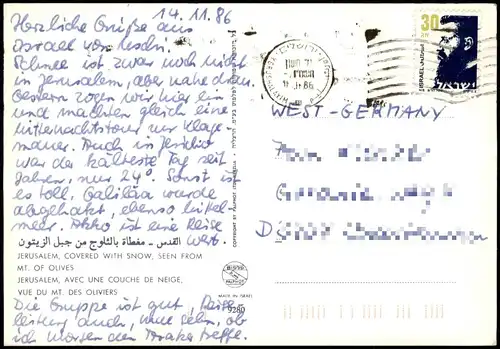 14.11.86
Herzliche Grüße aus
Israel von
Schnee ist zwar noch nicht
in Jerusalem, aber nahe dran.
Gestern zogen wir hier ein
und machten gleich eine
Mitternachtstour zur Klage-
mauer. Auch in Jericho
war der kälteste Tag seit
Jahren, nur 24°. Sonst ist
es toll, Galiläa wurde
abgehakt, ebenso Mittel-
meer. Akko ist eine Reise
wert.
القدس - مغطاة بالثلوج من جبل الزيتون
JERUSALEM, COVERED WITH SNOW, SEEN FROM
MT. OF OLIVES
JERUSALEM, AVEC UNE COUCHE DE NEIGE,
VUE DU MT. DES OLIVIERS
Die Gruppe ist gut, Reise-
leitung auch, mal sehn, ob
ich morgen den treffe.
MADE IN ISRAEL
9280
30
ISRAEL
ישראל
WEST-GERMANY
D